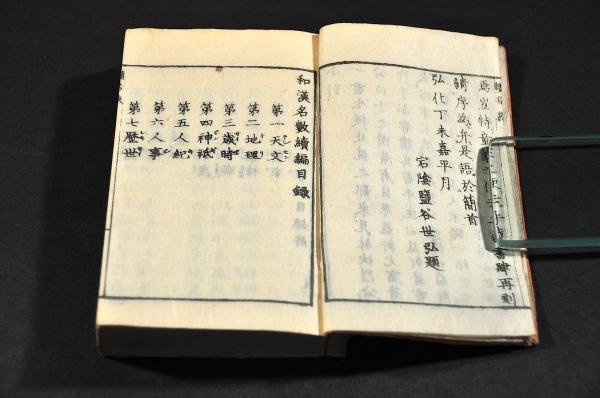 爲豈特童
書肆再刻
請序爲弁是語於簡首
弘化丁未嘉平月
宕陰鹽谷世弘題
和漢名數續編目録
第一天文
第二地理
第三歳時
第四神祇
第五人紀
第六人事
第七歷世